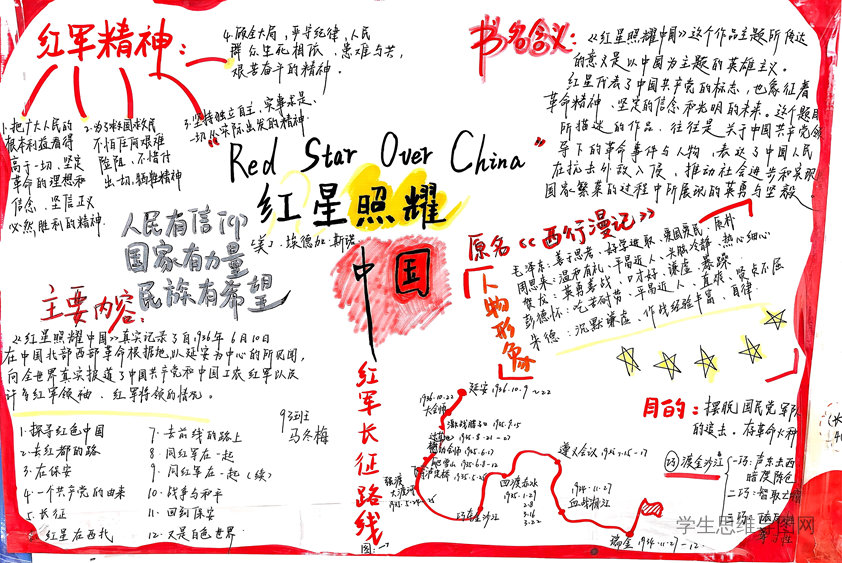 红军精神：
1.把广大人民的
根本利益看得
高于一切，坚定
革命的理想和
信念，坚信正义
必然胜利的精神
2.为了救国救民
不怕任何艰难
险阻，不惜付
出一切牺牲精神
3.坚持独立自主，实事求是，
一切从实际出发的精神
4.顾全大局，严守纪律，人民
群众生死相依，患难与共，
艰苦奋斗的精神．
书名含义：
《红星照耀中国》这个作品主题所传达
的意义是以中国为主题的英雄主义。
红星代表了中国共产党的标志，也象征着
革命精神、坚定的信念和光明的未来。这个题目
所描述的作品，往往是关于中国共产党领
导下的革命事件与人物，表达了中国人民
在抗击外敌入侵，推动社会进步和实现
国家繁荣的过程中所展现的英勇与坚毅
"Red Star Over China"
红星照耀
中国
(美)．埃德加．斯诺
人民有信仰
国家有力量
民族有希望
原名《西行漫记》
人物形象
毛泽东：善于思考，好学进取，爱国爱民，质朴
周恩来：温和有礼，平易近人，头脑冷静，热心细心
贺龙：英勇善战，口才好，谦虚，暴躁
彭德怀：吃苦耐劳，平易近人，直率，坚贞不屈
朱德：沉默谦虚，作战经验丰富，自律
主要内容：
《红星照耀中国》真实记录了自1936年6月10日
在中国北部西部革命根据地以延安为中心的所见闻，
向全世界真实报道了中国共产党和中国工农红军以及
许多红军领袖、红军将领的情况。
93班
马冬梅
1.探寻红色中国
2.去红都的路
3.在保安
4.一个共产党的由来
5.长征
红星在西北
7.去前线的路上
8.同红军在一起
9.同红军在一起(续)
10.战争与和平
11.回到保安
12.又是白色世界．
红军长征路线
图：→
延安1936.10.9～22
1936.10.22
大会师
激战腊子口 1935.9.15
遵义会议 1935.1.15-17
强渡
大渡河
四渡赤水
1935.1.29
3.16
3.22
巧渡金沙江
1934.11.27
血战湘江
瑞金
目的：摆脱国民党军队
的追击，存革命火种
巧渡金沙江
一巧：声东击西
暗度陈仓
二巧：智取
三巧：
学生思维导图网